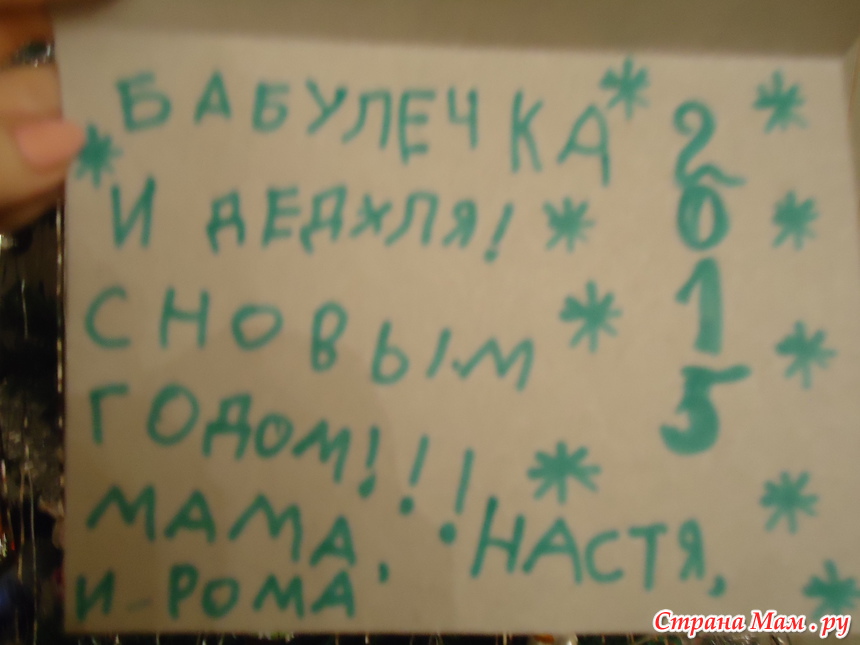 БАБУЛЕЧКА
И ДЕДХЛЯ!
СНОВЫМ
ГОДОМ!!!
МАМА, НАСТЯ,
И РОМА
2015
Страна Мам.ру